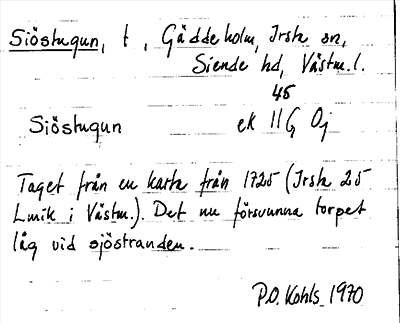 Sjöstugun, t, Gäddeholm, Irsta sn,
Siende hd, Västm. l.
45
Sjöstugun ek 11G 0j
Taget från en karta från 1725 (Irsta 25
Lmik i Västm.). Det nu försvunna torpet
låg vid sjöstranden.
P.O. Kohls 1970